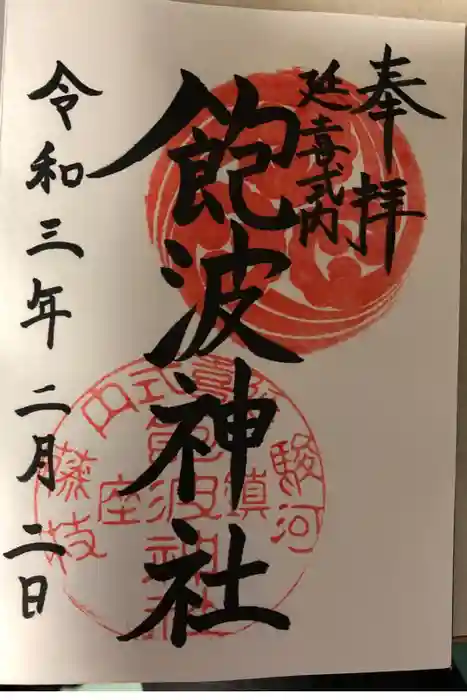 奉拝
延喜式内
飽波神社
令和三年二月二日
駿河
延喜式内
藤枝
鎮座
飽波神社